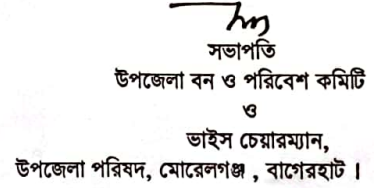 সভাপতি
উপজেলা বন ও পরিবেশ কমিটি
ও
ভাইস চেয়ারম্যান,
উপজেলা পরিষদ, মোরেলগঞ্জ , বাগেরহাট ।